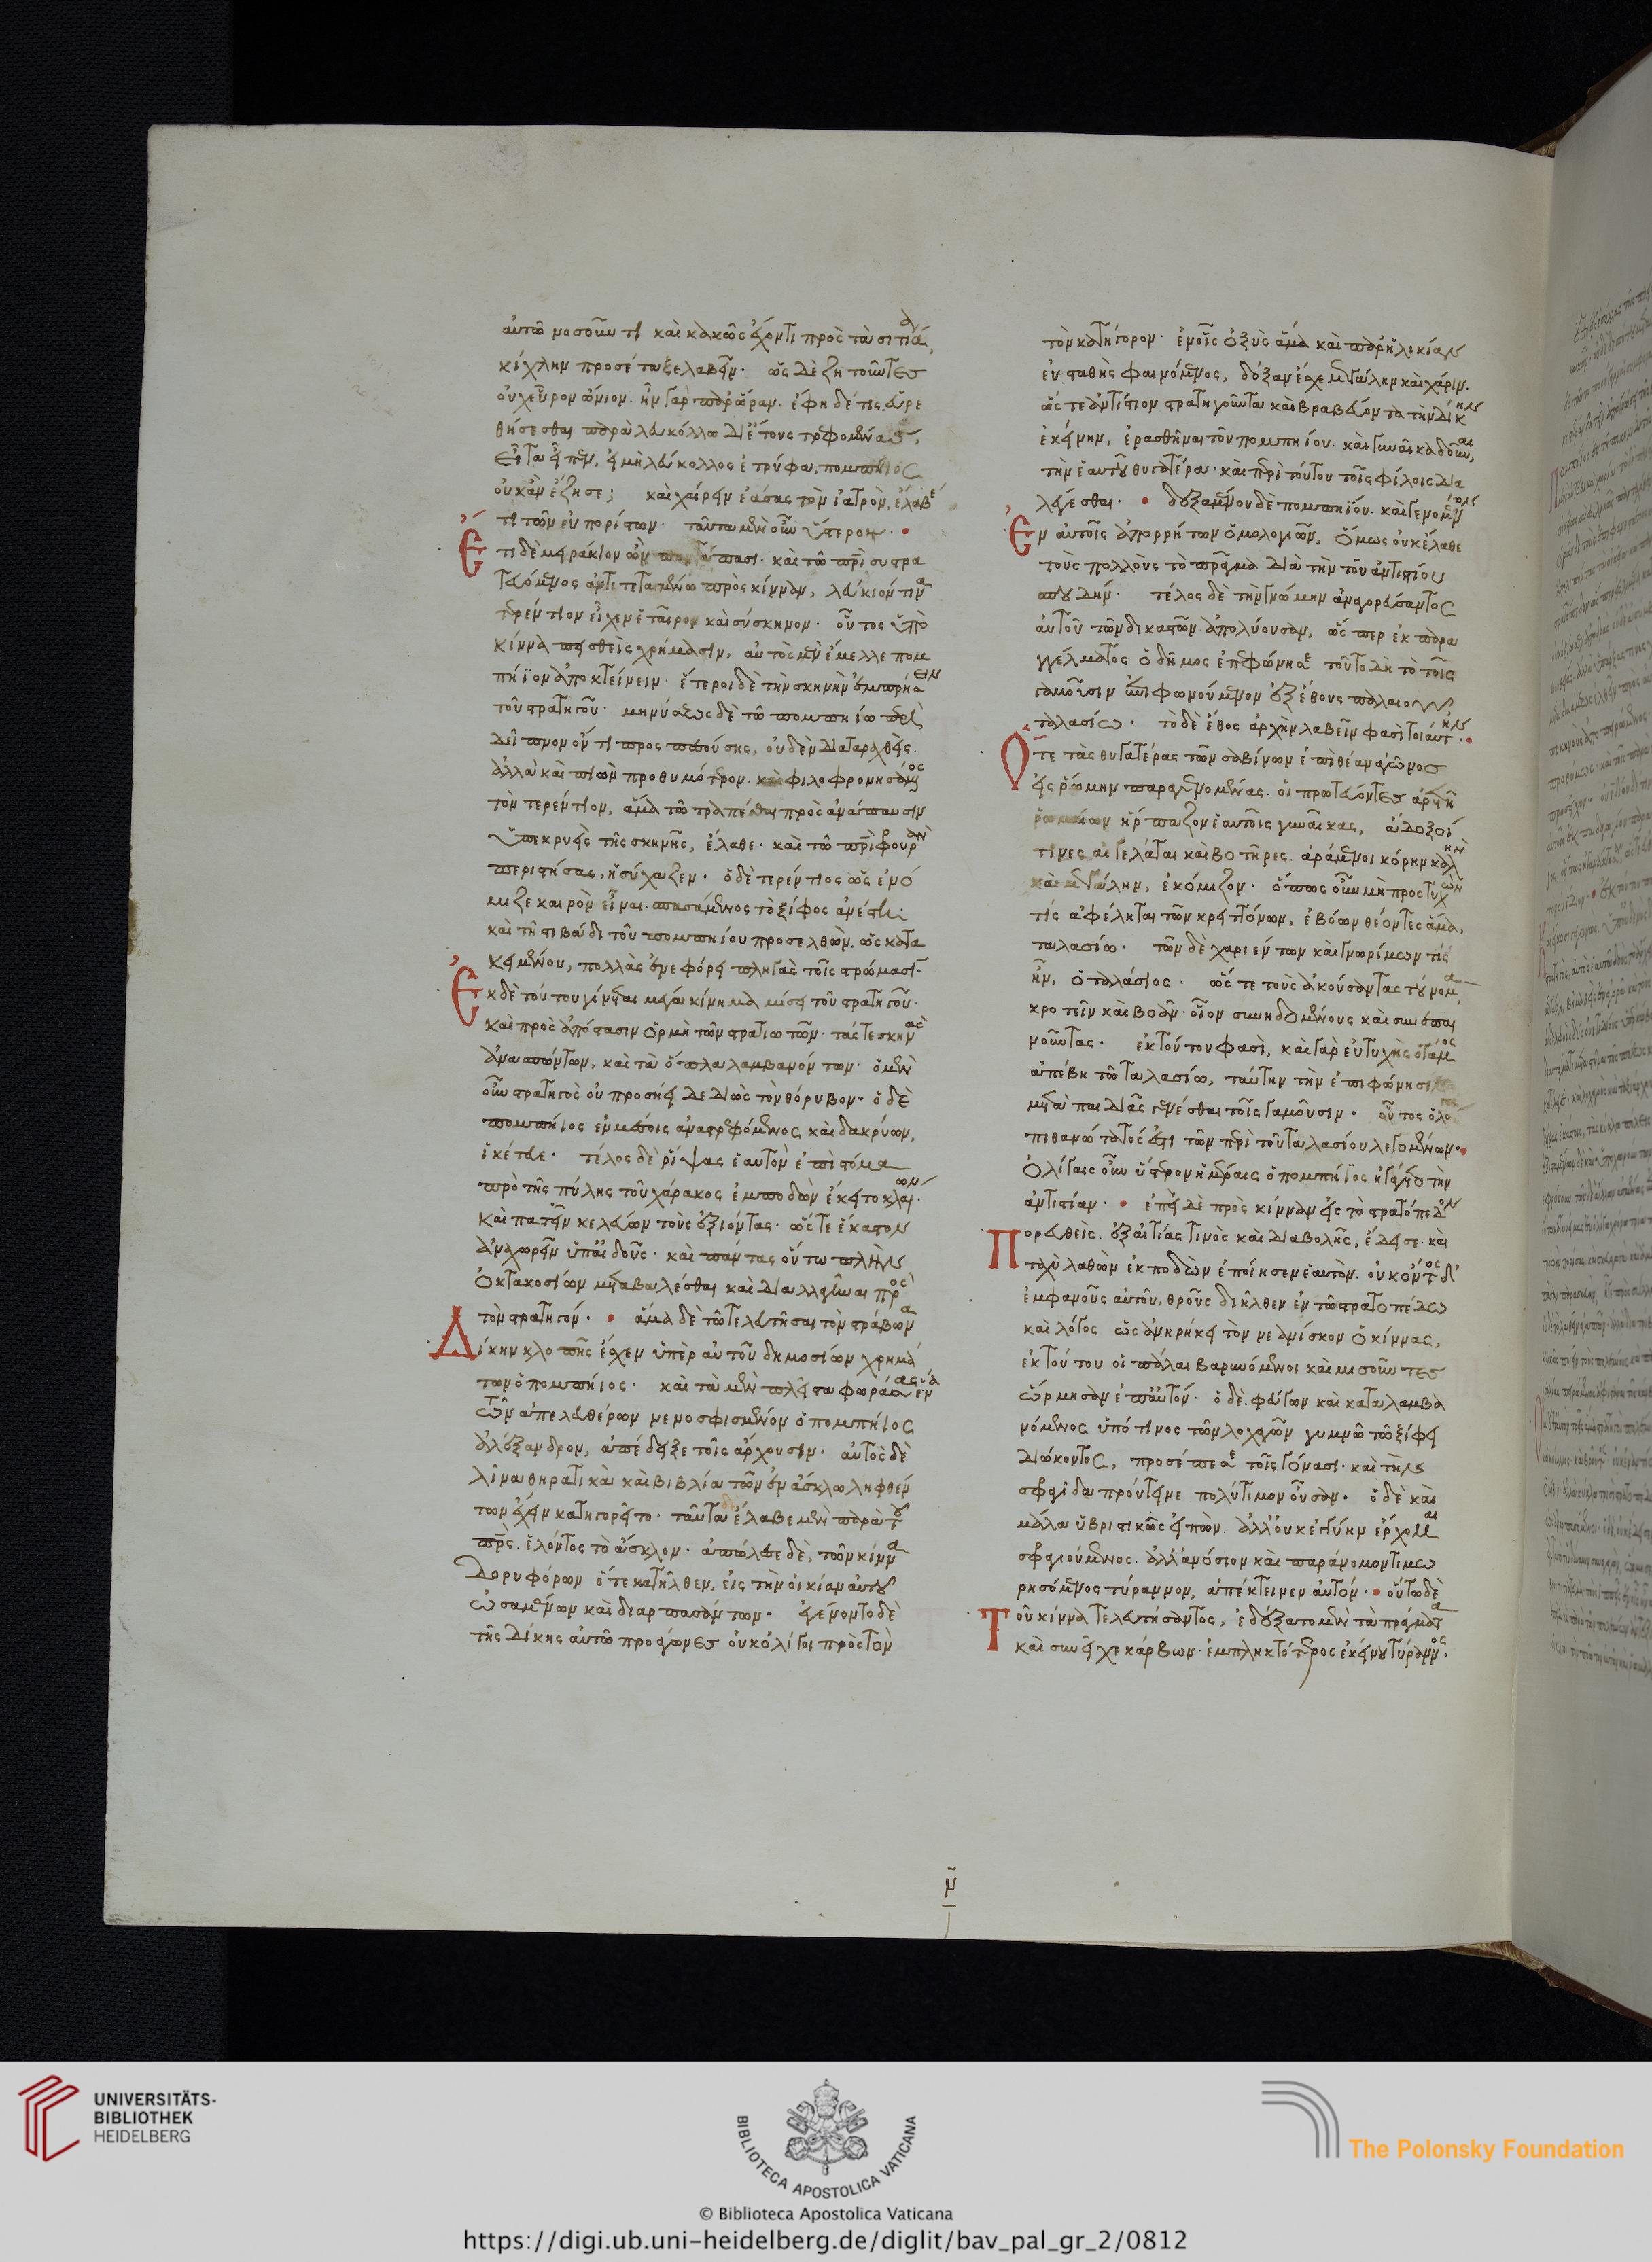 αὐτῶ νοσοῦντι καὶ κακῶς ἔχοντι πρὸς τὰ σιτία,
κίχλην προσέταξε λαβεῖν. ὡς δὲ ζητοῦντες
οὐχ εὗρον ὤνιον. ἦν γὰρ παρ' ὥραν. ἔφη δέ τις εὑρε
θήσεσθαι παρὰ λευκόλλω δι' ἔτους τρεφομένας,
εἶτα εἶπεν, εἰ μὴ λεύκολλος ἐτρύφα, πομπήιος
οὐκ ἂν ἔζησε; καὶ χαίρειν ἐάσας τὸν ἰατρὸν, ἔλαβέ
τι τῶν εὐπορίστων. ταῦτα μὲν οὖν ὕστερον.
Ἔτι δὲ μειράκιον ὢν παντάπασι. καὶ τῶ πατρὶ συστρα
τευόμενος ἀντιτεταγμένω πρὸς κίνναν, λεύκιόν τινα
τερέντιον εἶχεν ἑταῖρον καὶ σύσκηνον. οὗτος ὑπὸ
κίννα πεισθεὶς χρήμασιν, αὐτὸς μὲν ἔμελλε πομ
πήϊον ἀποκτείνειν. ἕτεροι δὲ τὴν σκηνὴν ἐμπρήσειν
τοῦ στρατηγοῦ. μηνύσεως δὲ τῶ πομπηίω περὶ
δεῖπνον ὄντι προσπεσούσης, οὐδὲν διαταραχθεὶς.
ἀλλὰ καὶ πιὼν προθυμότερον. καὶ φιλοφρονησάμενος
τὸν τερέντιον, ἅμα τῶ τραπέσθαι πρὸς ἀνάπαυσιν
ὑπεκρυεὶς τῆς σκηνῆς, ἔλαθε. καὶ τῶ πατρὶ φουρὰν
περιστήσας, ἡσύχαζεν. ὁ δὲ τερέντιος ὡς ἐνό
μιζε καιρὸν εἶναι. σπασάμενος τὸ ξίφος ἀνέστη.
καὶ τῆ στιβάδι τοῦ πομπηίου προσελθὼν. ὡς κατα
κειμένου, πολλὰς ἐνεφόρει πληγὰς τοῖς στρώμασιν.
Ἐκ δὲ τούτου γίνεται μέγα κίνημα μίσει τοῦ στρατηγοῦ.
καὶ πρὸς ἀπόστασιν ὁρμὴ τῶν στρατιωτῶν. τάς τε σκηνὰς
ἀνασπώντων, καὶ τὰ ὅπλα λαμβανόντων. ὁ μὲν
οὖν στρατηγὸς οὐ προσήει δεδιὼς τὸν θόρυβον. ὁ δὲ
πομπήιος ἐν μέσοις ἀναστρεφόμενος καὶ δακρύων,
ἱκέτευε. τέλος δὲ ῥίψας ἑαυτὸν ἐπὶ στόμα
πρὸ τῆς πύλης τοῦ χάρακος ἐμποδὼν ἔκειτο κλαίων.
καὶ πατεῖν κελεύων τοὺς ἐξιόντας. ὥστε ἕκαστον
ἀναχωρεῖν ὑπ' αἰδοῦς. καὶ πάντας οὕτω πλὴν
ὀκτακοσίων μεταβαλέσθαι καὶ διαλλαγῆναι πρὸς
τὸν στρατηγόν. ἅμα δὲ τῶ τελευτῆσαι τὸν στράβωνα
Δίκην κλοπῆς ἔσχεν ὑπὲρ αὐτοῦ δημοσίων χρημά
των ὁ πομπήιος. καὶ τὰ μὲν πλεῖστα φωράσας ἕνα
τῶν ἀπελευθέρων νενοσφισμένον ὁ πομπήιος
ἀλέξανδρον, ἀπέδειξε τοῖς ἄρχουσιν. αὐτὸς δὲ
λίνα θηρατικὰ καὶ βιβλία τῶν ἐν ἄσκλω ληφθέν
των ἔχειν κατηγορεῖτο. ταῦτα δὲ ἔλαβε μὲν παρὰ τοῦ
πατρὸς. ἑλόντος τὸ ἄσκλον. ἀπώλεσε δὲ, τῶν κίννα
δορυφόρων ὅτε κατῆλθεν, εἰς τὴν οἰκίαν αὐτοῦ
ὠσαμένων καὶ διαρπασάντων. ἐγένοντο δὲ
τῆς δίκης αὐτῶ προαγῶνες οὐκ ὀλίγοι πρὸς τὸν
τὸν κατήγορον. ἐν οἷς ὀξὺς ἅμα καὶ παρ' ἡλικίαν
εὐσταθὴς φαινόμενος, δόξαν ἔσχε μεγάλην καὶ χάριν.
ὥστε ἀντίστιον στρατηγοῦντα καὶ βραβεύοντα τὴν δίκην
ἐκείνην, ἐρασθῆναι τοῦ πομπηίου. καὶ γυναῖκα διδόναι,
τὴν ἑαυτοῦ θυγατέρα. καὶ περὶ τούτου τοῖς φίλοις δια
λέγεσθαι. δεξαμένου δὲ πομπηΐου. καὶ γενομένων
Ἐν αὐτοῖς ἀπορρήτων ὁμολογιῶν, ὅμως οὐκ ἔλαθε
τοὺς πολλοὺς τὸ πρᾶγμα διὰ τὴν τοῦ ἀντιστίου
σπουδήν. τέλος δὲ τὴν γνώμην ἀναγορεύσαντος
αὐτοῦ τῶν δικαστῶν ἀπολύουσαν, ὥσπερ ἐκ παρα
γγέλματος ὁ δῆμος ἐπεφώνησε τοῦτο δὴ τὸ τοῖς
γαμοῦσιν ἐπιφωνούμενον ἐξ ἔθους παλαιοῦ
ταλασίω. τὸ δὲ ἔθος ἀρχὴν λαβεῖν φασὶ τοιαύτην.
Ὅτε τὰς θυγατέρας τῶν σαβίνων ἐπὶ θέαν ἀγῶνος
εἰς ῥώμην παραγενομένας. οἱ πρωτεύοντες ἀρετῆ
ῥωμαίων ἥρπαζον ἑαυτοῖς γυναῖκας, ἄδοξοί
τινες αἰγελάται καὶ βοτῆρες. ἀράμενοι κόρην καλὴν
καὶ μεγάλην, ἐκόμιζον. ὅπως οὖν μὴ προστυχών
τίς ἀφέληται τῶν κρειττόνων, ἐβόων θέοντες ἅμα,
ταλασίω. τῶν δὲ χαριέντων καὶ γνωρίμων τίς
ἦν, ὁ ταλάσιος. ὥστε τοὺς ἀκούσαντας τοὔνομα
κροτεῖν καὶ βοᾶν. οἷον συνηδομένους καὶ συνεπαι
νοῦντας. ἐκ τούτου φασὶ, καὶ γὰρ εὐτυχὴς ὁ γάμος
ἀπέβη τῶ ταλασίω, ταύτην τὴν ἐπιφώνησιν
μετὰ παιδιᾶς γενέσθαι τοῖς γαμοῦσιν. οὗτος ὁ λό
πιθανώτατός ἐστι τῶν περὶ τοῦ ταλασίου λεγομένων.
ὀλίγαις οὖν ὕστερον ἡμέραις ὁ πομπήϊος ἠγάγετο τὴν
ἀντιστίαν. ἐπεὶ δὲ πρὸς κίνναν εἰς τὸ στρατόπεδον
Πορευθεὶς. ἐξ αἰτίας τινὸς καὶ διαβολῆς, ἔδεισε. καὶ
ταχὺ λαθὼν ἐκποδὼν ἐποίησεν ἑαυτὸν. οὐκ ὄντος δ'
ἐμφανοῦς αὐτοῦ. θροῦς διῆλθεν ἐν τῶ στρατοπέδω
καὶ λόγος ὡς ἀνηρήκει τὸν νεανίσκον ὁ κίννας,
ἐκ τούτου οἱ πάλαι βαρυνόμενοι καὶ μισοῦντες
ὥρμησαν ἐπ' αὐτόν. ὁ δὲ. φεύγων καὶ καταλαμβα
νόμενος ὑπό τινος τῶν λοχαγῶν γυμνῶ τῶ ξίφει
διώκοντος, προσέπεσε τοῖς γόνασι. καὶ τὴν
σφραγῖδα προὔτεινε πολύτιμον οὖσαν. ὁ δὲ καὶ
μάλα ὑβριστικῶς εἰπὼν. ἀλλ' οὐκ ἐγγύην ἔρχομαι
σφραγιούμενος. ἀλλ' ἀνόσιον καὶ παράνομον τιμω
ρησόμενος τύραννον, ἀπέκτεινεν αὐτόν. οὕτω δὲ
Τοῦ κίννα τελευτήσαντος, ἐδέξατο μὲν τὰ πράγματα
καὶ συνεῖχε κάρβων. ἐμπληκτότερος ἐκείνου τύραννος.
μ
UNIVERSITÄTS-
BIBLIOTHEK
HEIDELBERG
BIBLIOTECA APOSTOLICA VATICANA
The Polonsky Foundation
© Biblioteca Apostolica Vaticana
https://digi.ub.uni-heidelberg.de/diglit/bav_pal_gr_2/0812